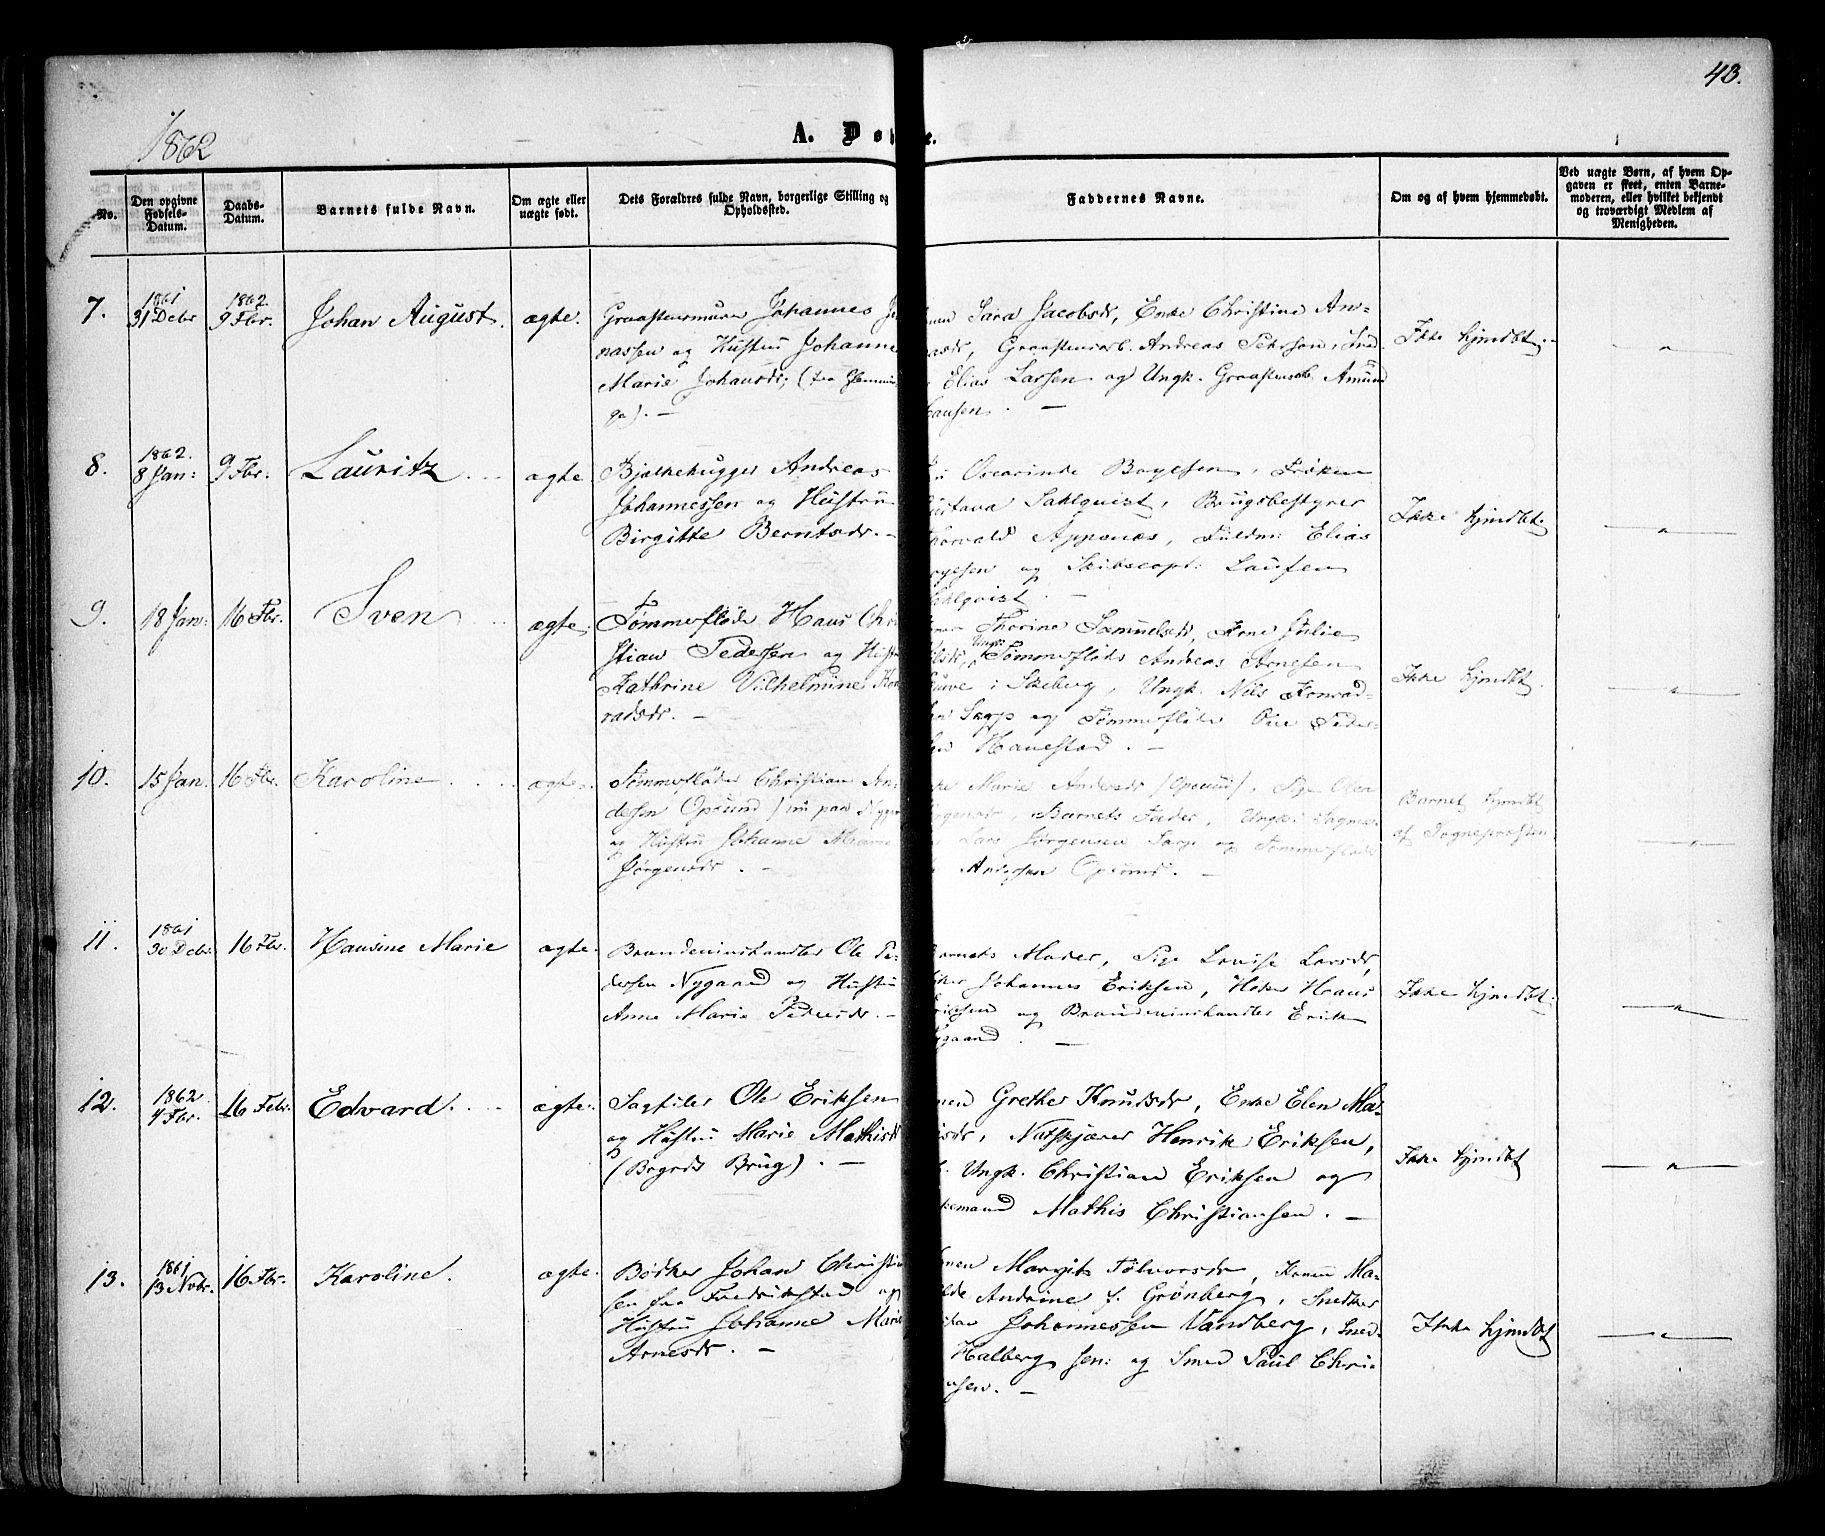 43.
1862
A. Dø
e.
No.
Den opgivne Fødsels-Datum.
Daabs-Datum.
Barnets fulde Navn.
Om ægte eller uægte født.
Dets Forældres fulde Navn, borgerlige Stilling og Opholdssted.
Faddernes Navne.
Om og af hvem hjemmedøbt.
Ved uægte Børn, af hvem Opgaven er skeet, enten Barnemoderen, eller hvilket bekjendt og troværdigt Medlem af Menigheden.
7. 1861 31 Debr 1862. 9 Fbr. Johan August. ægte.
Graastensmurer Johannes Jo
nassen og Hustru Johanne
Marie Johansdr; (fra Glemmin
ge). —
Sara Jacobsdr, Enke Christine An-
Graastensarb. Andreas Pehrson, Sned
Elias Larsen og Ungk. Graastensarb. Amund
Hansen. —
Ikke hjmdbt. —
8. 1862. 8 Jan: 9 Fbr. Lauritz ægte
Bjelkehugger Andreas
Johannessen og Hustru
Birgitte Berntsdr. —
Oscarinde Boyesen, Frøken
Gustava Sahlqvist, Brugsbestyrer
Thorvald Appenæs, Fuldm: Elias
Boyesen og Skibscapt: Laufen
Sahlqvist. —
Ikke hjmdbt.
9. 18 Jan: 16 Fbr. Sven ægte
Tømmerfløder Hans Chri
stian Pedersen og Hustr
Kathrine Vilhelmine Kon
radsdr. —
Thorine Samuelsdr, Kone Julie
Ungk. Tømmerfløder Andreas Arnesen
Kurve i Skeberg, Ungk. Nils Konrad-
sen Sarp og Tømmerfløder Ole Peder-
sen Hanestad. —
Ikke hjmdbt.
10. 15 Jan. 16 Fbr. Karoline ægte.
Tømmerfløder Christian An
dersen (Opsund)
og Hustru Johanne Marie
Jørgensdr. —
Marie Andersdr (Opsund), Pige Olea
Jørgensdr, Barnets Fader, Ungk:
Lars Jørgensen Sarp og Tømmerfløder
Andersen Opsund. —
Barnet hjmdbt
af Sogneprosten
11. 1861 30 Debr. 16 Fbr. Hansine Marie ægte.
Brændevinshandler Ole Pe-
dersen Nygaard og Hustru
Anne Marie Pedersdr. —
Barnets Moder, Pige Lovise Larsdr,
Johannes Eriksen, Høker Hans
Eriksen og Brændevinshandler Erik
Nygaard. —
Ikke hjmdbt.
12. 1862. 4 Fbr. 16 Febr. Edvard. ægte.
Sagfiler Ole Eriksen
og Hustru Marie Mathisdr
(Borgeds Brug). —
Grethe Knudsdr, Enke Elen Ma-
Natskjærer Henrik Eriksen,
Ungk. Christian Eriksen og
Mathis Christiansen. —
Ikke hjmdbt
13. 1861 13 Novbr. 16 Fbr. Karoline. ægte.
Bødker Johan Christi
sen fra Fredrikstad og
Hustru Johanne Marie
Arnesdr. —
Margit Tolvorsdr, Konen Ma-
Andrine f. Grønberg, Snedker
Johannessen Vandberg, Sned-
Halberg sen: og Smed Paul Chri-
ansen. —
Ikke hjmdbt